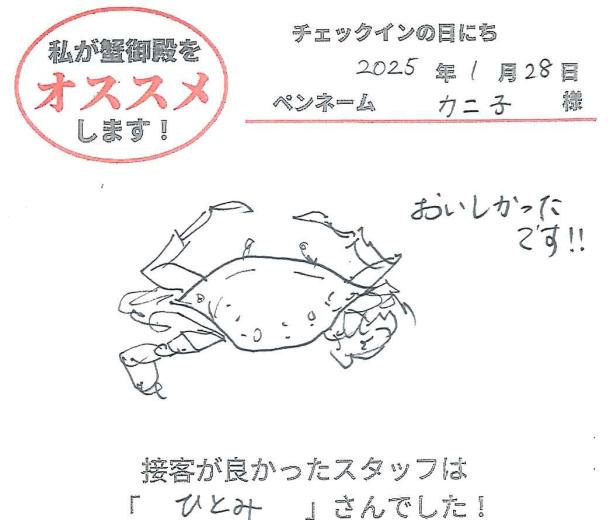 私が蟹御殿を
オススメ
します！
チェックインの日にち
2025 年 1 月 28 日
ペンネーム カニ子 様
おいしかった
です!!
接客が良かったスタッフは
「 ひとみ 」さんでした！